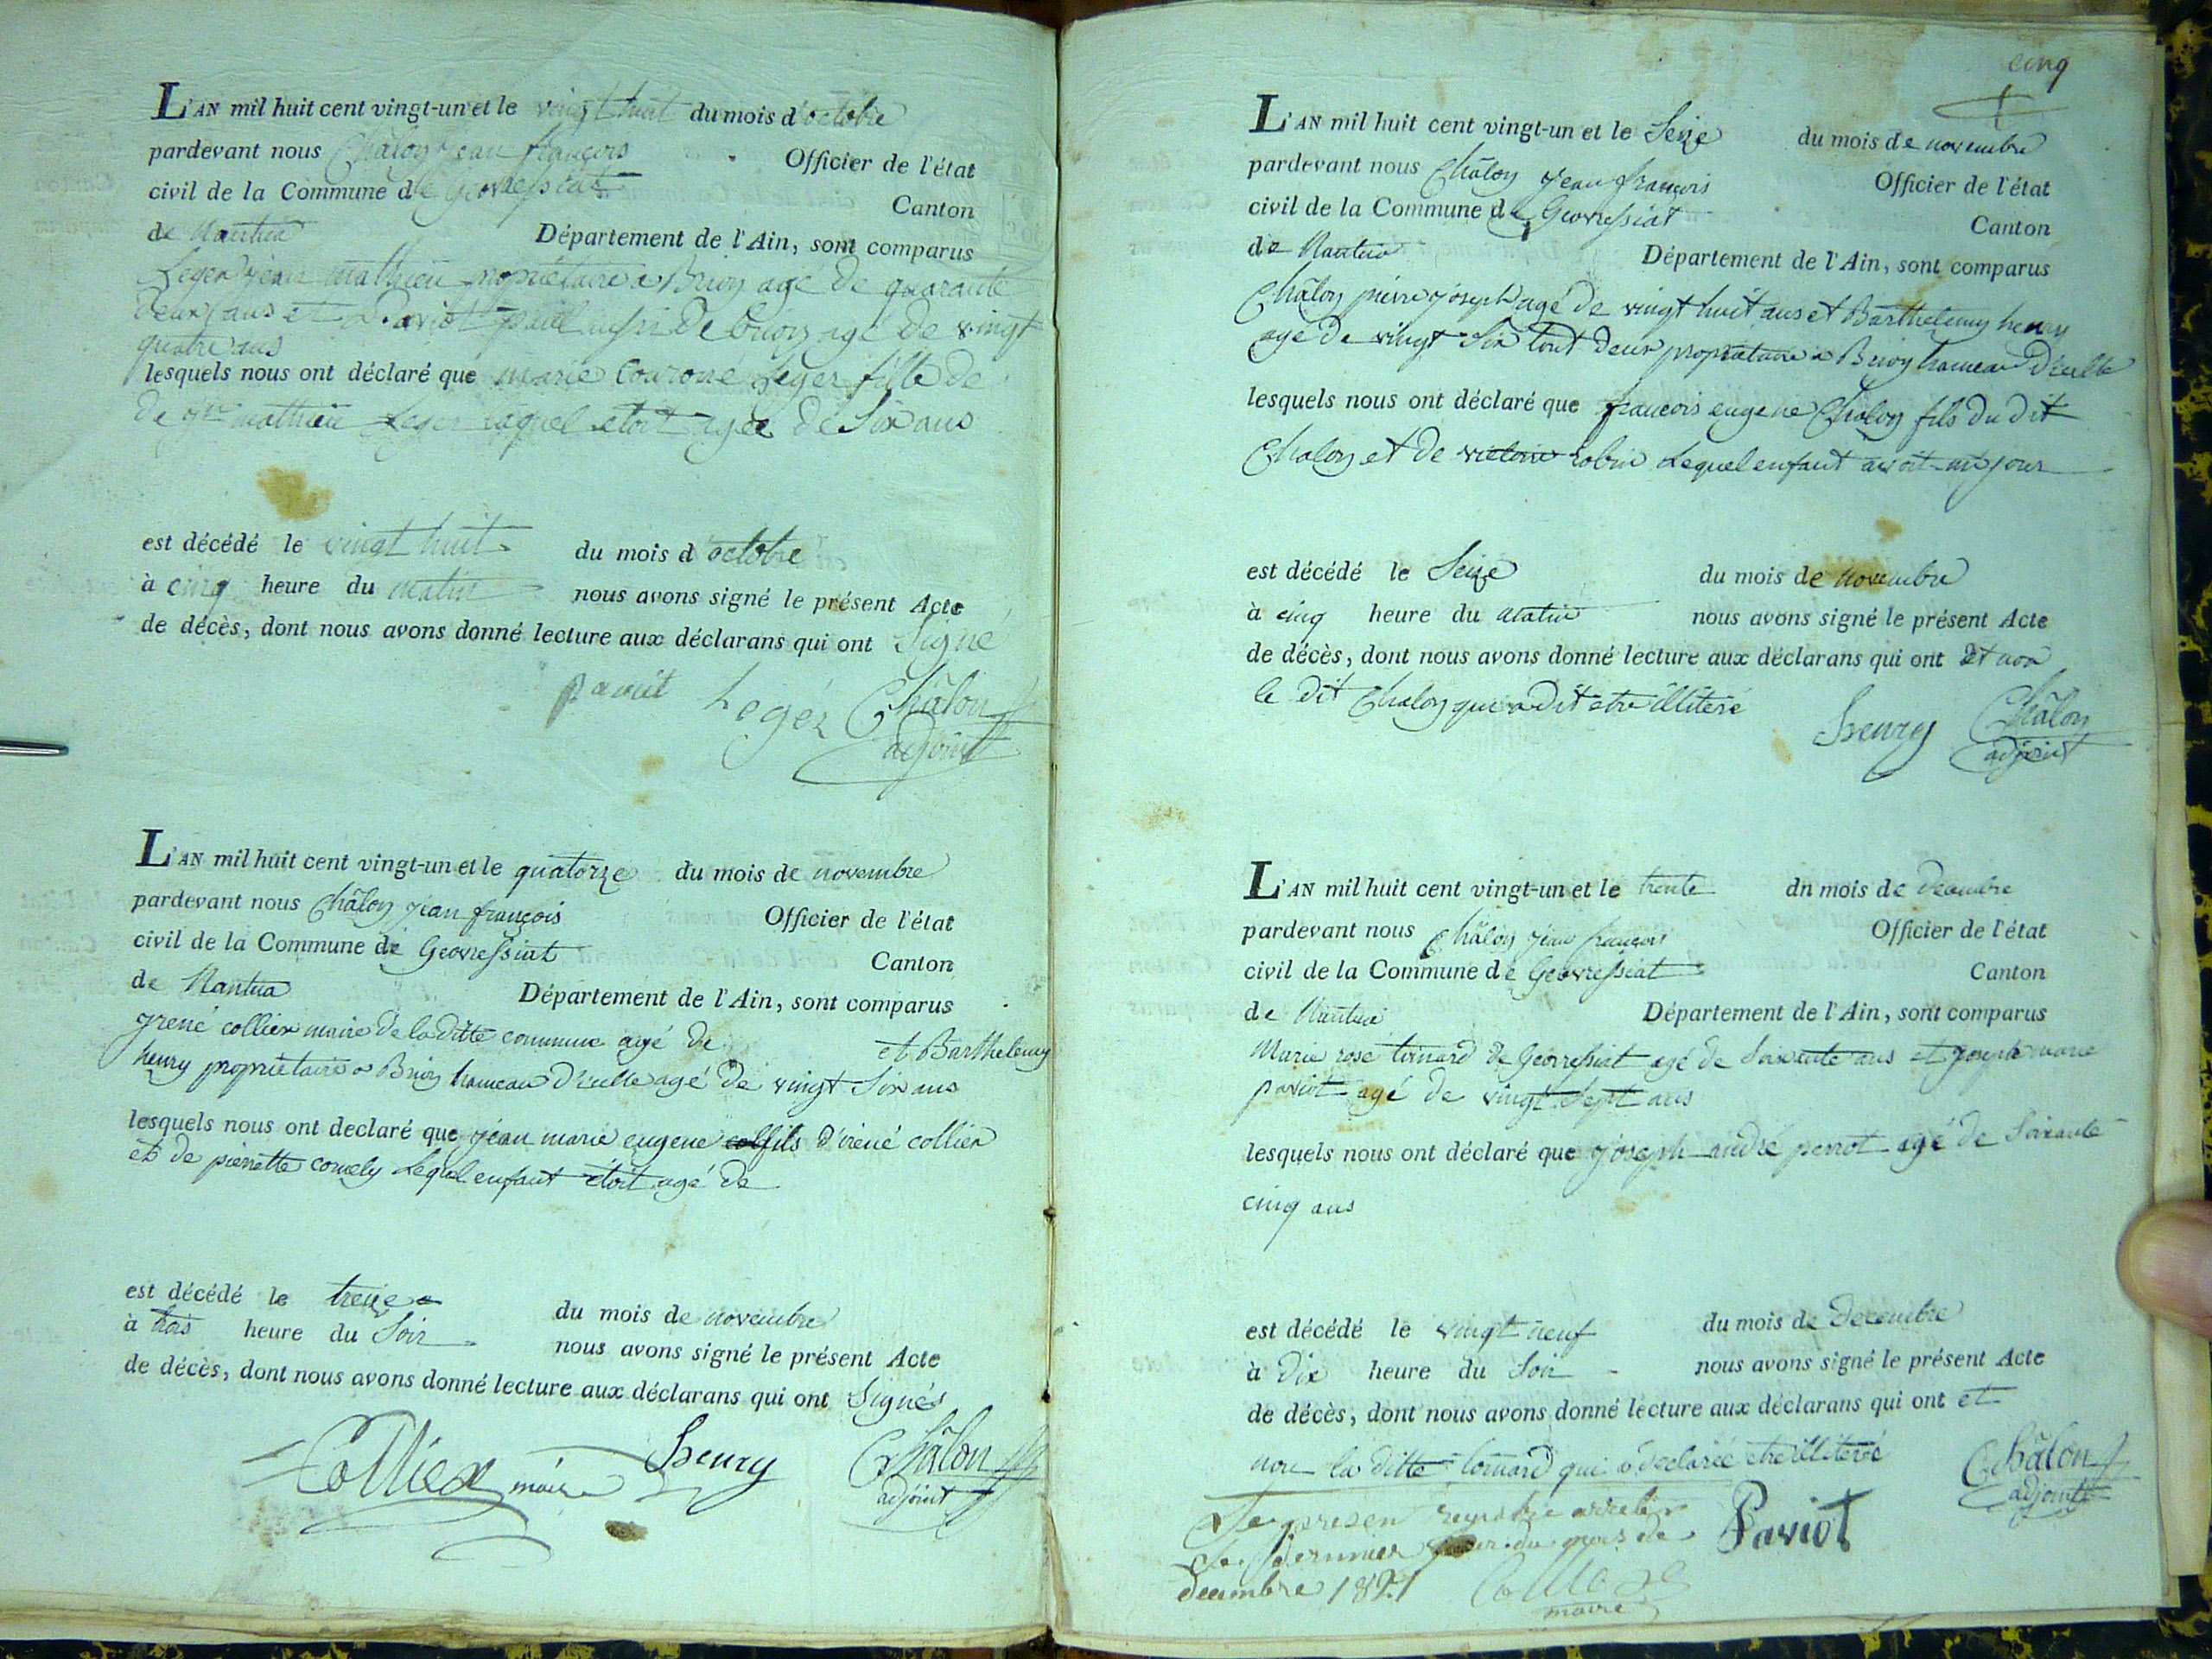 L'AN mil huit cent vingt-un et le vingt huit du mois d'octobre
pardevant nous Châlon jean françois Officier de l'état
civil de la Commune de Geovressiat Canton
de Nantua Département de l'Ain, sont comparus
Leger jean mathieu propriétaire a Brion agé de quarante
deux ans et Paviot paul aussi de brion agé de vingt
quatre ans
lesquels nous ont déclaré que marie Leger fille de
de mathieu Leger laquel etoit agée de Six ans
est décédé le vingt huit du mois d'octobre
à cinq heure du matin nous avons signé le présent Acte
de décès, dont nous avons donné lecture aux déclarans qui ont Signé
paviot Legér Châlon
adjoint
L'AN mil huit cent vingt-un et le quatorze du mois de novembre
pardevant nous Châlon jean françois Officier de l'état
civil de la Commune de Geovressiat Canton
de Nantua Département de l'Ain, sont comparus
yrené collier maire de la ditte commune agé de et Barthelemy
henry propriétaire a Brion hameau d'eulle agé de vingt Six ans
lesquels nous ont declaré que jean marie eugene fils d'irené collier
et de pierrette comely Lequel enfant étoit agé de
est décédé le treize du mois de novembre
à trois heure du Soir nous avons signé le présent Acte
de décès, dont nous avons donné lecture aux déclarans qui ont Signés
Collier maire henry Châlon
adjoint
cinq
L'AN mil huit cent vingt-un et le Seize du mois de novembre
pardevant nous Châlon jean françois Officier de l'état
civil de la Commune de Geovressiat Canton
de Nantua Département de l'Ain, sont comparus
Châlon pierre joseph agé de vingt huit ans et Barthelemy henry
age de vingt Six tout deux propriétaire a Brion hameau d'eulle
lesquels nous ont déclaré que francois eugene Chalon fils du dit
Chalon et de victoire robin Lequel enfant avoit un jour
est décédé le Seize du mois de novembre
à cinq heure du matin nous avons signé le présent Acte
de décès, dont nous avons donné lecture aux déclarans qui ont et non
le dit Chalon qui a dit etre illiteré
henry Châlon
adjoint
L'AN mil huit cent vingt-un et le trente dn mois de decembre
pardevant nous Châlon jean françois Officier de l'état
civil de la Commune de Geovressiat Canton
de Nantua Département de l'Ain, sont comparus
Marie rose tornard de Geovressiat agé de Soixante ans et joseph marie
paviot agé de vingt Sept ans
lesquels nous ont déclaré que joseph andré perrot agé de Soixante
cinq ans
est décédé le vingt neuf du mois de decembre
à dix heure du Soir nous avons signé le présent Acte
de décès, dont nous avons donné lecture aux déclarans qui ont et
non la ditte tornard qui a declarée etre illiteré
Châlon
adjoint
Le presen registre arreté
Le dernier jour du mois de Paviot
decembre 1821 Collier
maire